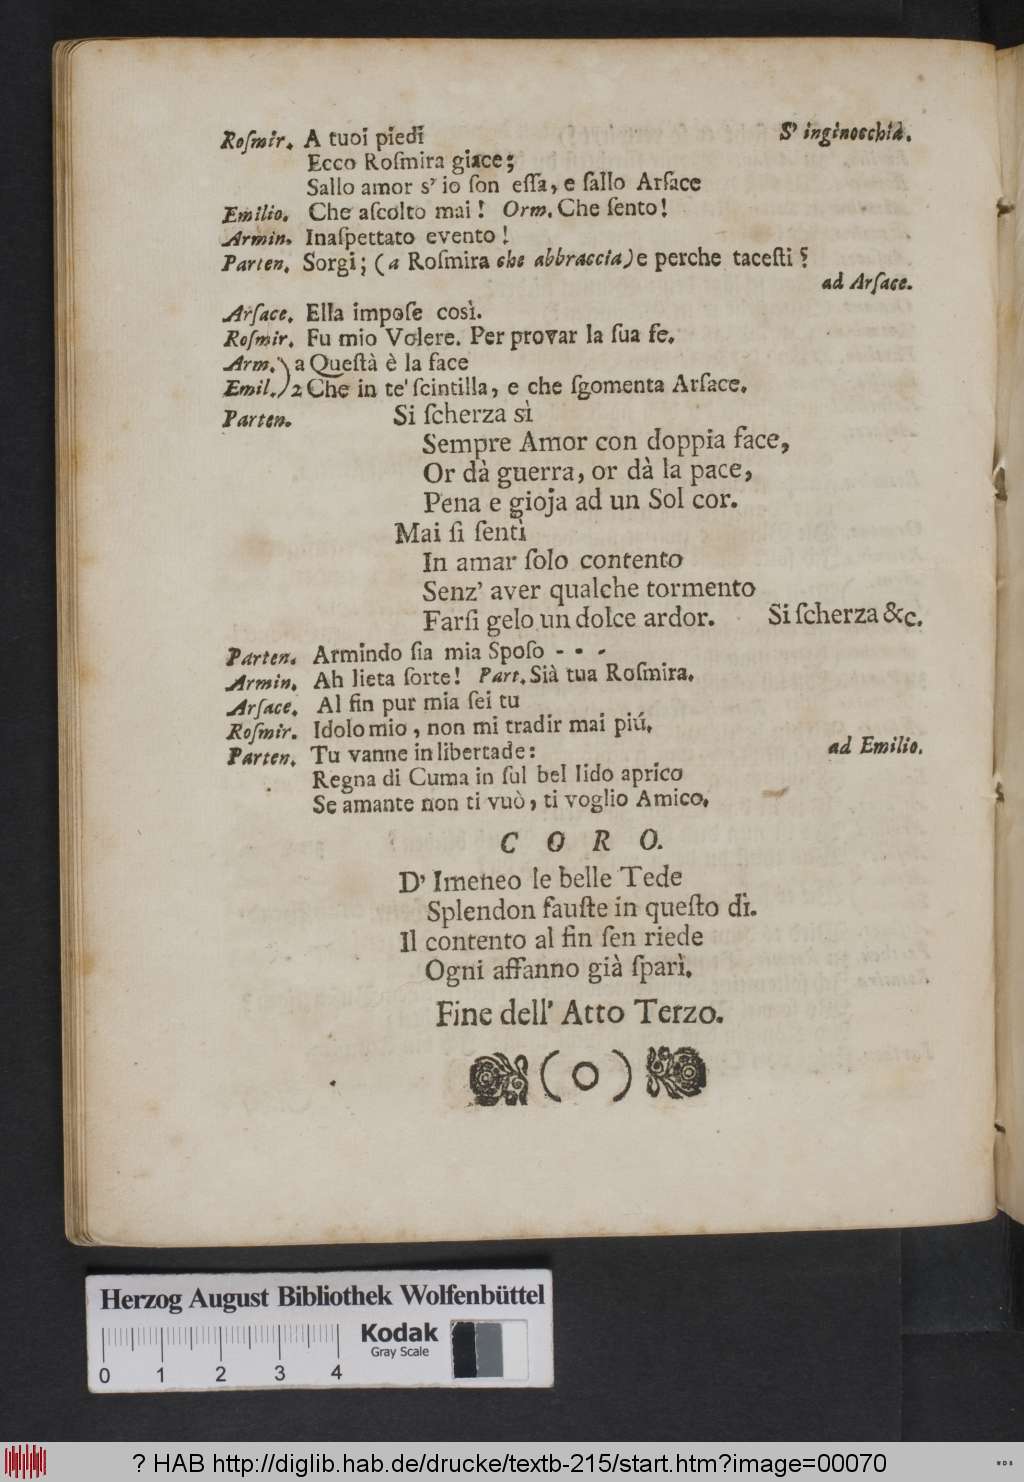 Roſmir. A tuoi piedi S' inginocchia.
Ecco Roſmira giace;
Sallo amor s' io ſon eſſa, e ſallo Arſace
Emilio. Che aſcolto mai! Orm. Che ſento!
Armin. Inaſpettato evento!
Parten. Sorgi; (a Roſmira che abbraccia) e perche taceſti?
ad Arſace.
Arſace. Ella impoſe così.
Roſmir. Fu mio Volere. Per provar la ſua fe.
Arm.) a Queſtà è la face
Emil.) 2 Che in te' ſcintilla, e che ſgomenta Arſace.
Parten. Si ſcherza sì
Sempre Amor con doppia face,
Or dà guerra, or dà la pace,
Pena e gioja ad un Sol cor.
Mai ſi ſentì
In amar ſolo contento
Senz' aver qualche tormento
Farſi gelo un dolce ardor. Si ſcherza &c.
Parten. Armindo ſia mia Spoſo - - -
Armin. Ah lieta ſorte! Part. Sià tua Roſmira.
Arſace. Al fin pur mia ſei tu
Roſmir. Idolo mio, non mi tradir mai piú.
Parten. Tu vanne in libertade: ad Emilio.
Regna di Cuma in ſul bel lido aprico
Se amante non ti vuò, ti voglio Amico.
C O R O.
D' Imeneo le belle Tede
Splendon fauſte in queſto dì.
Il contento al fin ſen riede
Ogni affanno già ſparì.
Fine dell' Atto Terzo.
(O)
Herzog August Bibliothek Wolfenbüttel
Kodak
Gray Scale
0 1 2 3 4
? HAB http://diglib.hab.de/drucke/textb-215/start.htm?image=00070
WDB